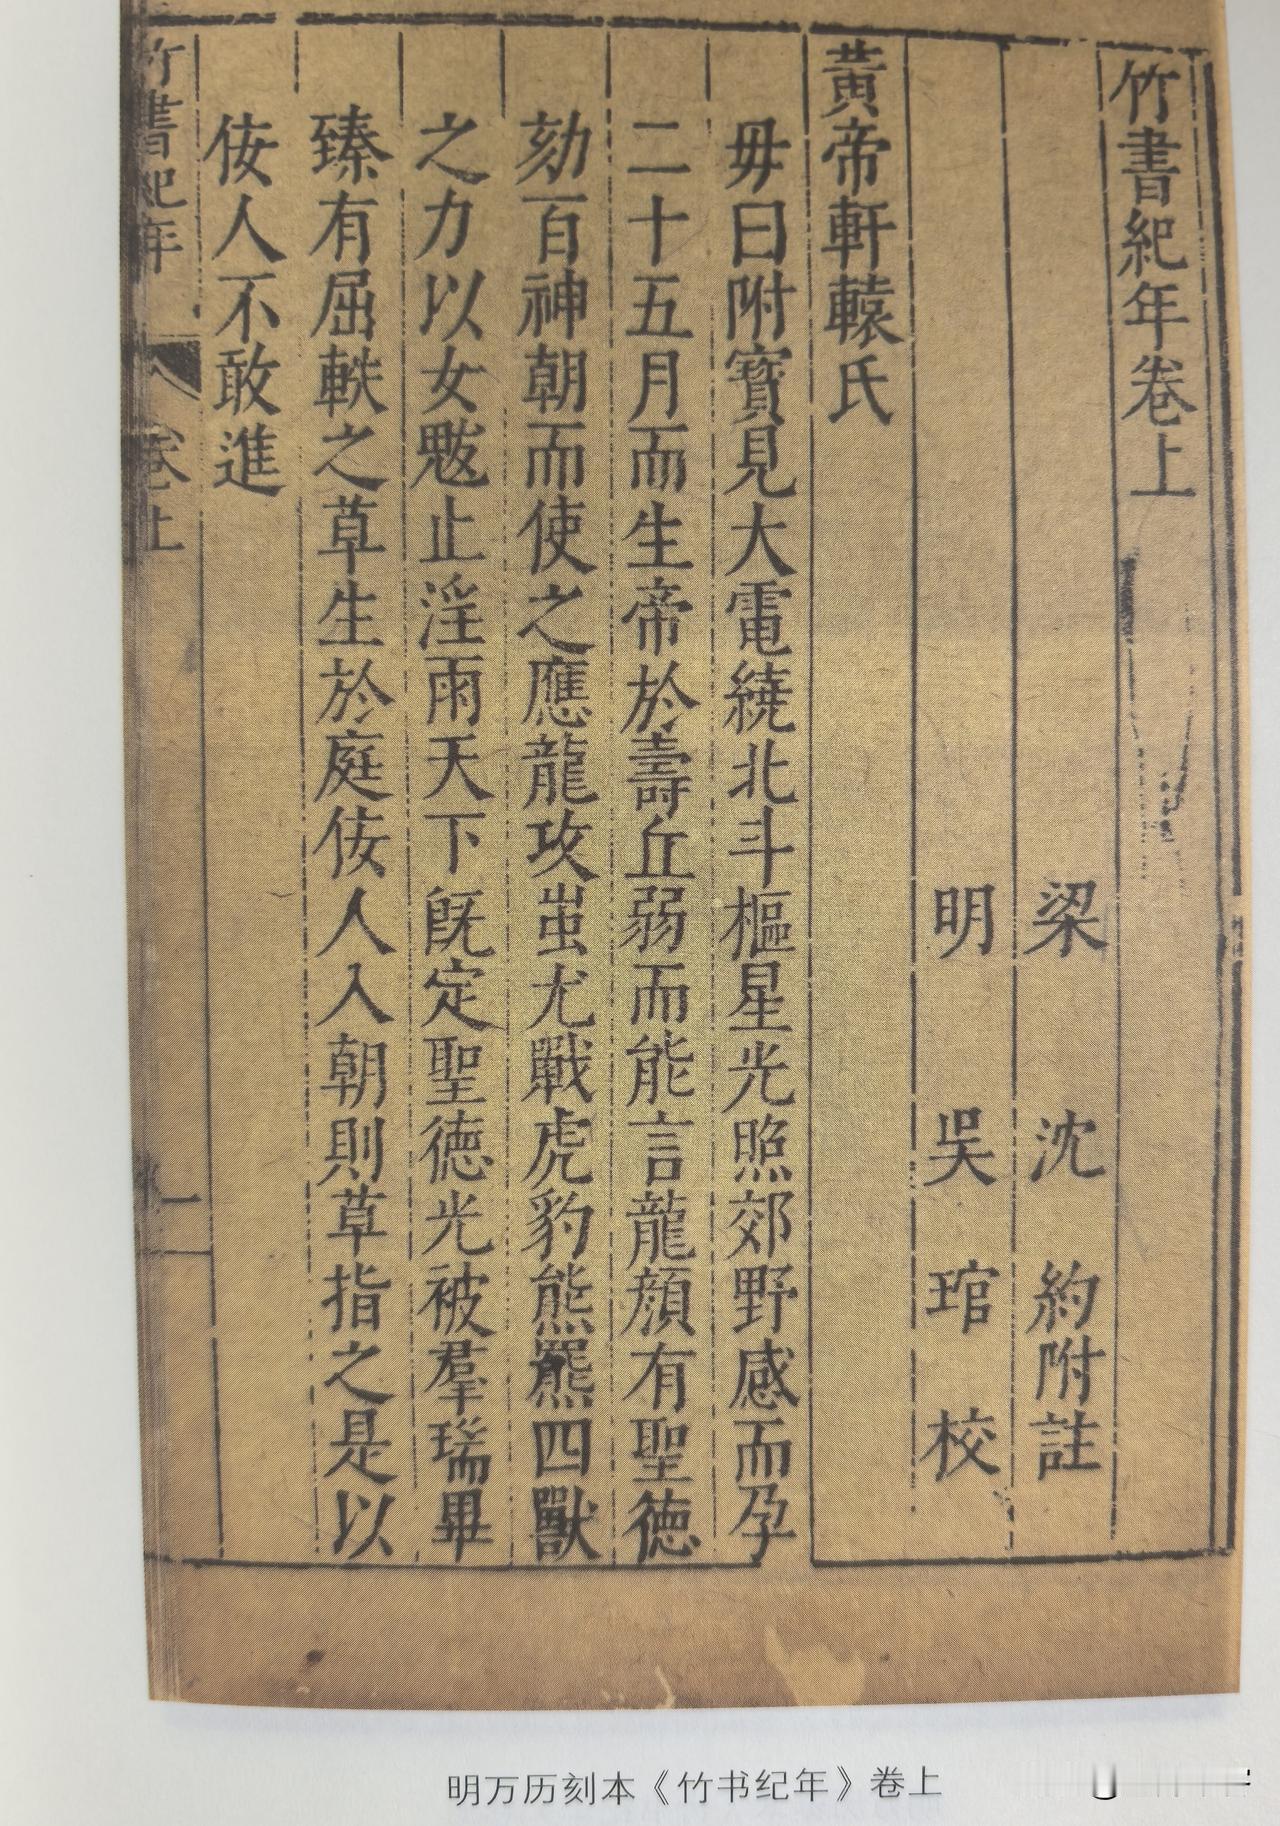 竹書紀年卷上
梁 沈約附註
明 吳琯校
黃帝軒轅氏
毋曰附寶見大電繞北斗樞星光照郊野感而孕
二十五月而生帝於壽丘弱而能言龍顏有聖徳
劾百神朝而使之應龍攻蚩尤戰虎豹熊羆四獸
之力以女魃止淫雨天下旣定聖徳光被羣瑞畢
臻有屈軼之草生於庭佞人入朝則草指之是以
佞人不敢進
竹書紀年 卷上 一
明万历刻本《竹书纪年》卷上